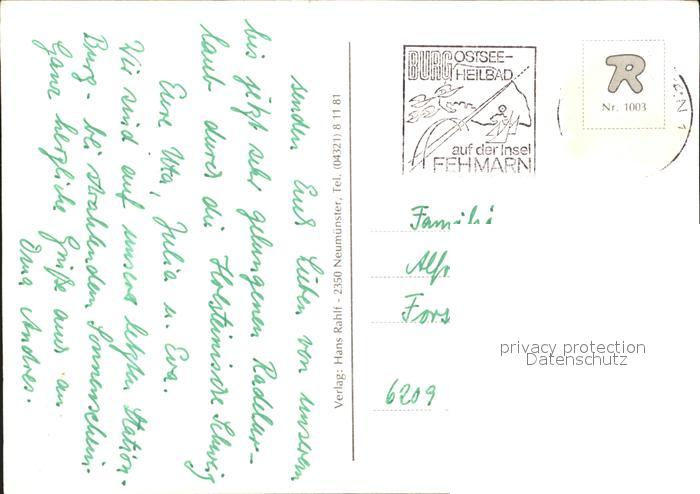 senden Euch Lieben von unserem
bis jetzt sehr gelungenen Radelur-
laub durch die Holsteinische Schweiz
Eure Uta, Julia u. Eva.
Wir sind auf unserer letzten Station.
Burg - bei strahlendem Sonnenschein.
Ganz herzliche Grüße auch
Oma Andres.
Verlag: Hans Rahlf - 2350 Neumünster, Tel. (04321) 8 11 81
BURG OSTSEE-
HEILBAD
auf der Insel
FEHMARN
R
Nr. 1003
Familie
Alf
Fors
6209
privacy protection
Datenschutz